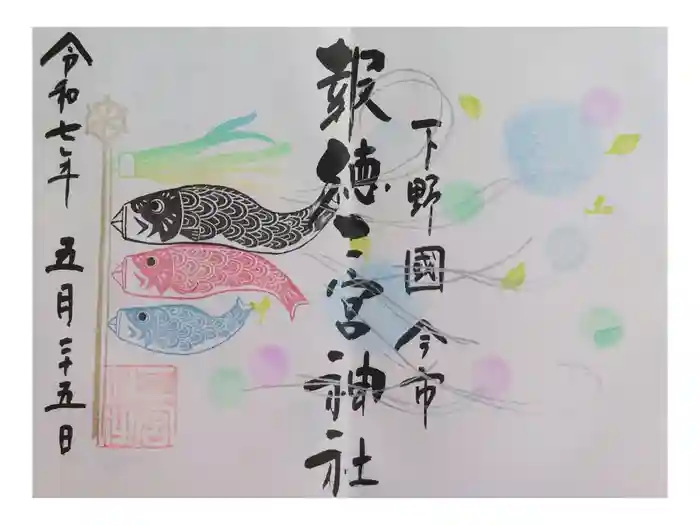 下野國今市
報徳二宮神社
令和七年 五月二十五日